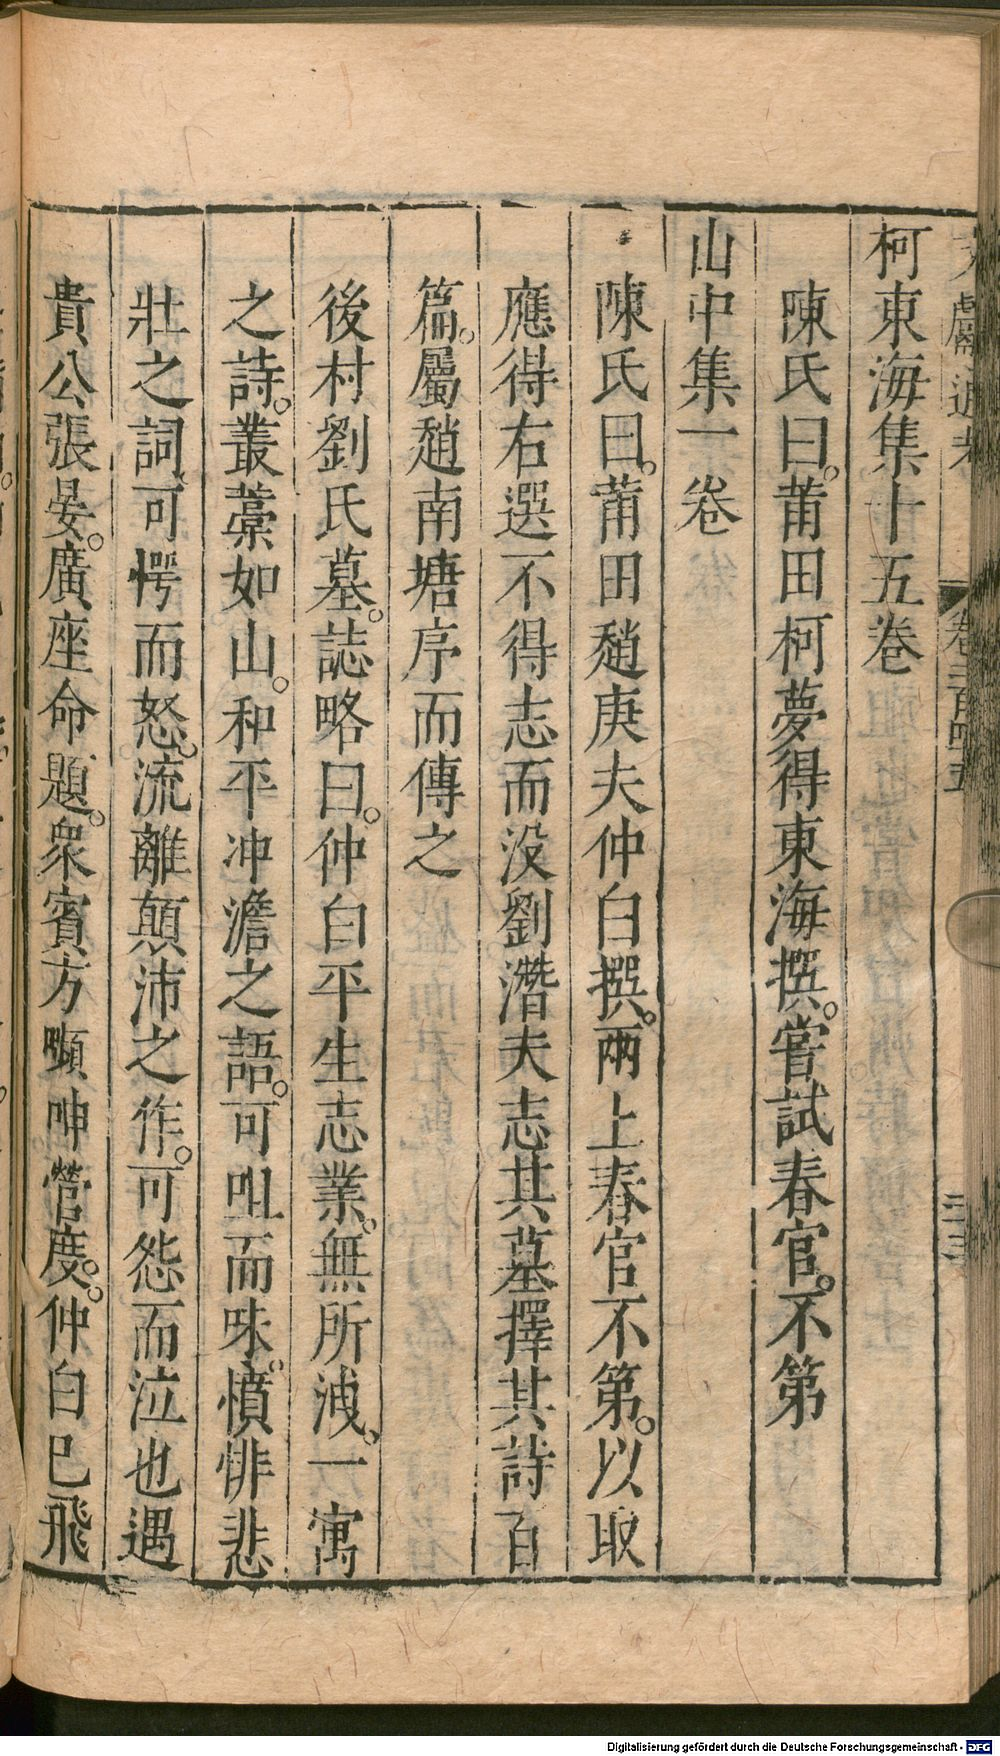 文獻通考 卷二百四十五
柯東海集十五卷
陳氏曰。莆田柯夢得東海撰。嘗試春官。不第
山中集一卷
陳氏曰。莆田趙庚夫仲白撰。兩上春官不第。以取
應得右選不得志而沒劉潛夫志其墓擇其詩百
篇。屬趙南塘序而傳之
後村劉氏墓。誌略曰。仲白平生志業。無所洩、一寓
之詩。叢藁如山。和平冲澹之語。可咀而味。憤悱悲
壯之詞、可愕而怒。流離顛沛之作。可怨而泣也遇
貴公張晏。廣座命題。衆賓方嚬呻營度。仲白已飛
Digitalisierung gefördert durch die Deutsche Forschungsgemeinschaft - DFG